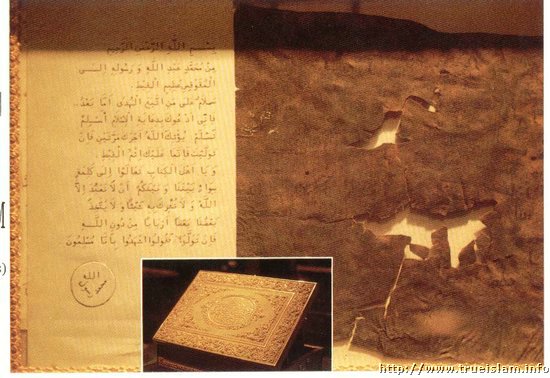 بسم الله الرحمن الرحيم
من محمد عبد الله و رسوله الى
المقوقس عظيم القبط.
سلام على من اتبع الهدى اما بعد..
فانى ادعوك بدعاية الاسلام اسلم
تسلم يؤتك الله اجرك مرتين فان
توليت فانما عليك اثم القبط
و يا اهل الكتاب تعالوا الى كلمة
سواء بيننا و بينكم ان لا نعبد الا
الله و لا نشرك به شيئا و لا يتخذ
بعضنا بعضا اربابا من دون الله
فان تولوا فقولوا اشهدوا بانا مسلمون
الله
رسول
محمد
http://www.trueislam.info